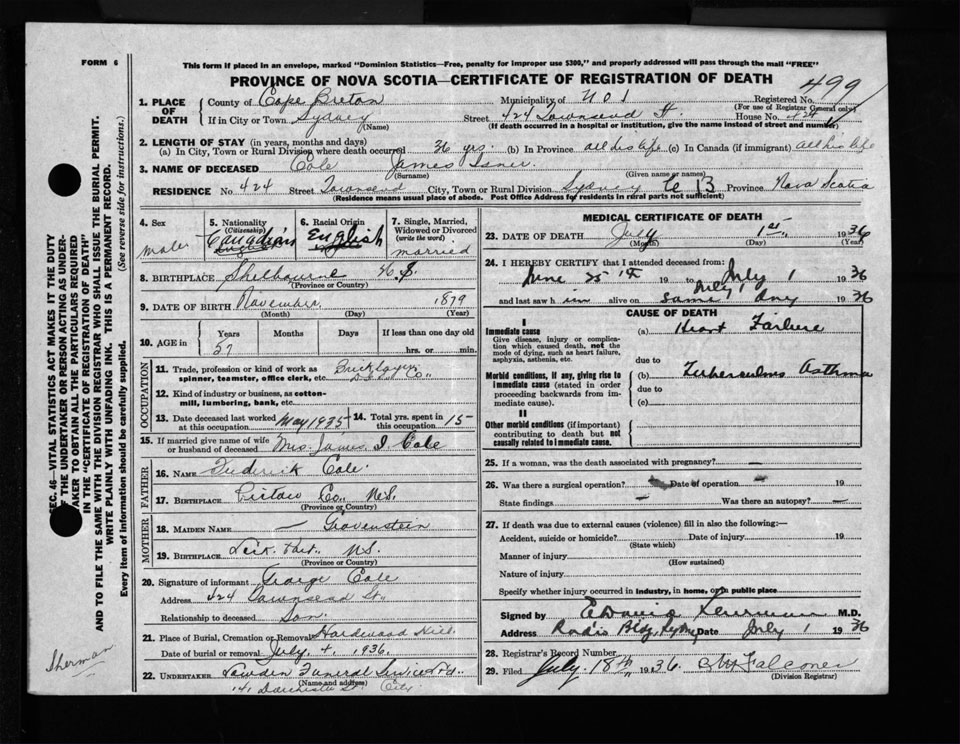 FORM 6
This form if placed in an envelope, marked "Dominion Statistics—Free, penalty for improper use $300," and properly addressed will pass through the mail "FREE"
PROVINCE OF NOVA SCOTIA—CERTIFICATE OF REGISTRATION OF DEATH
499
1. PLACE OF DEATH
County of Cape Breton Municipality of No 1 Registered No.
(For use of Registrar General only)
If in City or Town Sydney Street 424 Townsend St. House No. 424
(Name) (If death occurred in a hospital or institution, give the name instead of street and number)
2. LENGTH OF STAY (in years, months and days)
(a) In City, Town or Rural Division where death occurred 36 yrs. (b) In Province all his life (c) In Canada (if immigrant) all his life
3. NAME OF DECEASED Cole James Isner.
(Surname) (Given name or names)
RESIDENCE No 424 Street Townsend City, Town or Rural Division Sydney C B Province Nova Scotia
(Residence means usual place of abode. Post Office Address for residents in rural parts not sufficient)
4. Sex male
5. Nationality (Citizenship) Canadian
6. Racial Origin English
7. Single, Married, Widowed or Divorced (write the word) married
8. BIRTHPLACE Shelbourne N.S.
(Province or Country)
9. DATE OF BIRTH November 1879
(Month) (Day) (Year)
10. AGE in Years Months Days If less than one day old
57 hrs. or min.
OCCUPATION
11. Trade, profession or kind of work as spinner, teamster, office clerk, etc. Bricklayer Co.,
12. Kind of industry or business, as cotton-mill, lumbering, bank, etc.
13. Date deceased last worked at this occupation May 1935 14. Total yrs. spent in this occupation 15
15. If married give name of wife or husband of deceased Mrs. James I Cole
FATHER
16. NAME Frederick Cole.
17. BIRTHPLACE Pictou Co., N.S.
(Province or Country)
MOTHER
18. MAIDEN NAME — Grovenstein
19. BIRTHPLACE N.S.
(Province or Country)
20. Signature of informant George Cole
Address 424 Townsend St.,
Relationship to deceased Son
21. Place of Burial, Cremation or Removal Hardwood Hill.
Date of burial or removal July 4, 1936.
22. UNDERTAKER Funeral Service Ltd.
(Name and address)
141 Dorchester St. City
MEDICAL CERTIFICATE OF DEATH
23. DATE OF DEATH July 1st., 1936
(Month) (Day) (Year)
24. I HEREBY CERTIFY that I attended deceased from:
June 25th 19 to July 1 1936
July 1
and last saw him alive on same day 1936
CAUSE OF DEATH
I
Immediate cause
Give disease, injury or complication which caused death, not the mode of dying, such as heart failure, asphyxia, asthenia, etc.
(a) Heart Failure
due to
Morbid conditions, if any, giving rise to immediate cause (stated in order proceeding backwards from immediate cause).
(b) Tuberculous Asthma
due to
(c)
II
Other morbid conditions (if important) contributing to death but not causally related to immediate cause.
25. If a woman, was the death associated with pregnancy? —
26. Was there a surgical operation? Date of operation 19
State findings Was there an autopsy? —
27. If death was due to external causes (violence) fill in also the following:—
Accident, suicide or homicide? Date of injury 19
(State which)
Manner of injury
(How sustained)
Nature of injury
Specify whether injury occurred in industry, in home, or in public place
Signed by M.D.
Address Radio Bldg, Sydney Date July 1 1936
28. Registrar's Record Number
29. Filed July 18th 1936 Falconer
(Division Registrar)
SEC. 46—VITAL STATISTICS ACT MAKES IT THE DUTY
OF THE UNDERTAKER OR PERSON ACTING AS UNDER-
TAKER TO OBTAIN ALL THE PARTICULARS REQUIRED
IN THE "CERTIFICATE OF REGISTRATION OF DEATH"
AND TO FILE THE SAME WITH THE DIVISION REGISTRAR WHO SHALL ISSUE THE BURIAL PERMIT.
WRITE PLAINLY WITH UNFADING INK. THIS IS A PERMANENT RECORD.
Every item of information should be carefully supplied. (See reverse side for instructions.)
Sherman